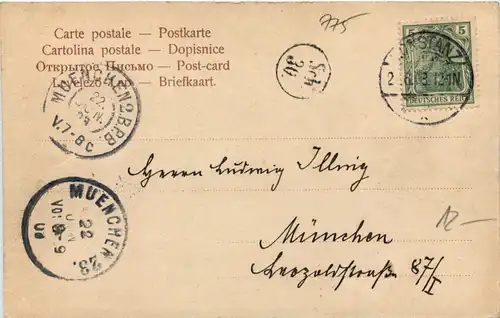 775
Carte postale — Postkarte
Cartolina postale — Dopisnice
Открытое Письмо — Post-card
Levelező-Lap — Briefkaart.
Sch
20
5 5
DEUTSCHES REICH
KONSTANZ
MUENCHEN 2 B.P.B
22
JUN.
V.7-8C
MUENCHEN 23.
22
JUN
Herrn Ludwig Illing
München
Leopoldstraße 87/I
12 —